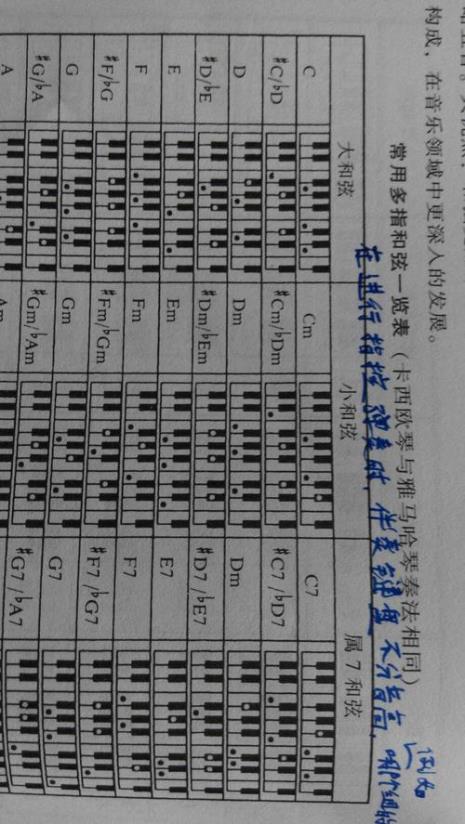 构成，在音乐领域中更深入的发展。
常用多指和弦一览表（卡西欧琴与雅马哈琴奏法相同）
在进行指控弹奏时，伴奏键盘不分左右
大和弦 小和弦 属7和弦
C Cm C7
♯C/♭D ♯Cm/♭Dm ♯C7/♭D7
D Dm Dm
♯D/♭E ♯Dm/♭Em ♯D7/♭E7
E Em E7
F Fm F7
♯F/♭G ♯Fm/♭Gm ♯F7/♭G7
G Gm G7
♯G/♭A ♯Gm/♭Am ♯G7/♭A7
A Am